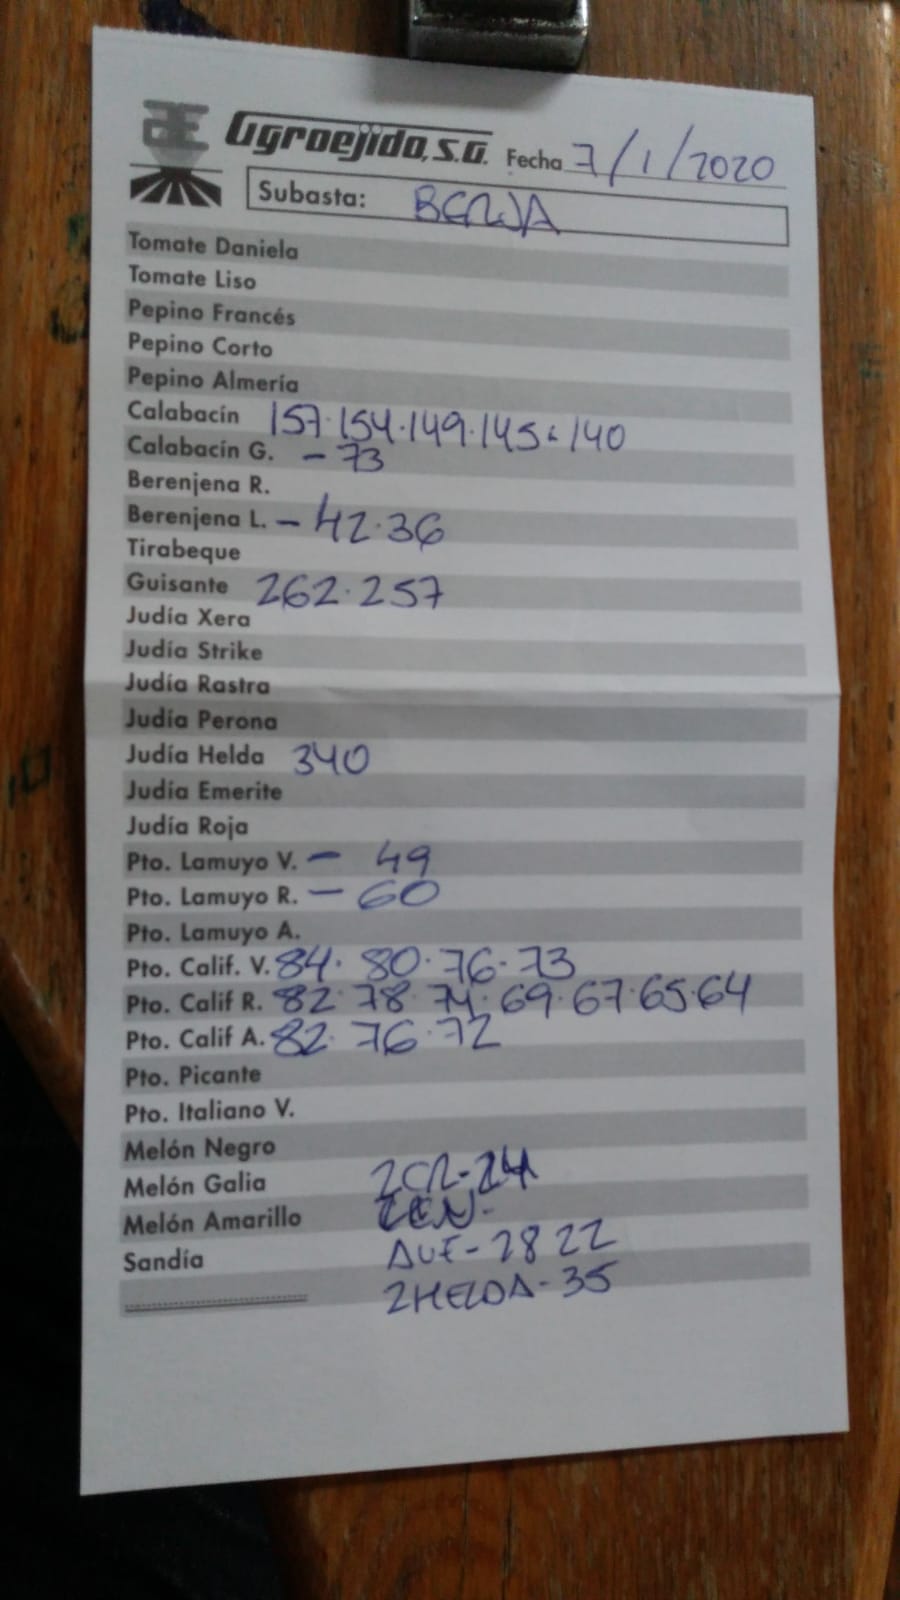 Agroejido, S.A. Fecha 7/1/2020
Subasta: BERJA
Tomate Daniela
Tomate Liso
Pepino Francés
Pepino Corto
Pepino Almería
Calabacín 157.154.149.145.140
Calabacín G. - 73
Berenjena R.
Berenjena L. - 42.36
Tirabeque
Guisante 262.257
Judía Xera
Judía Strike
Judía Rastra
Judía Perona
Judía Helda 340
Judía Emerite
Judía Roja
Pto. Lamuyo V. - 49
Pto. Lamuyo R. - 60
Pto. Lamuyo A.
Pto. Calif. V. 84. 80.76.73
Pto. Calif R. 82.78.74.69.67.65.64
Pto. Calif A. 82.76.72
Pto. Picante
Pto. Italiano V.
Melón Negro
Melón Galia 2CR-24
Melón Amarillo
Sandía -28 22
2HELDA-35